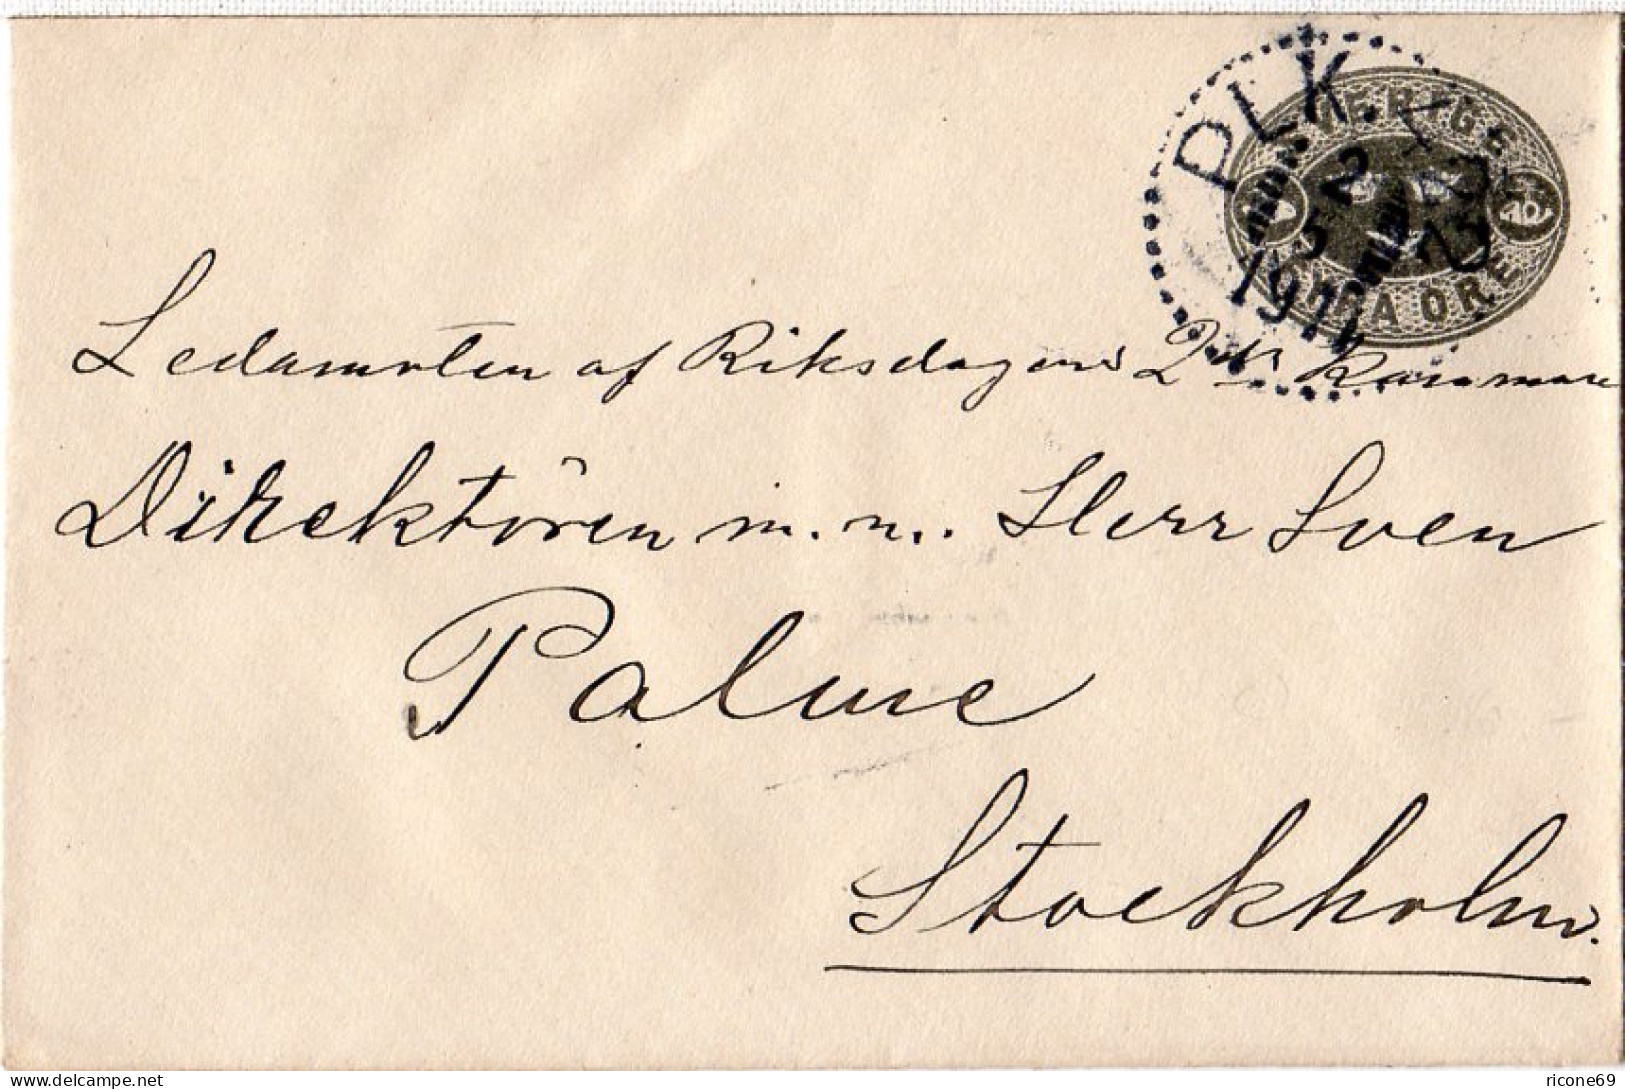 PLK.
2
3
1911
SVERIGE
FYRA ÖRE
Ledamoten af Riksdagens 2dra Kammare
Direktören m. m. Herr Sven
Palme
Stockholm.
delcampe.net
ricone69